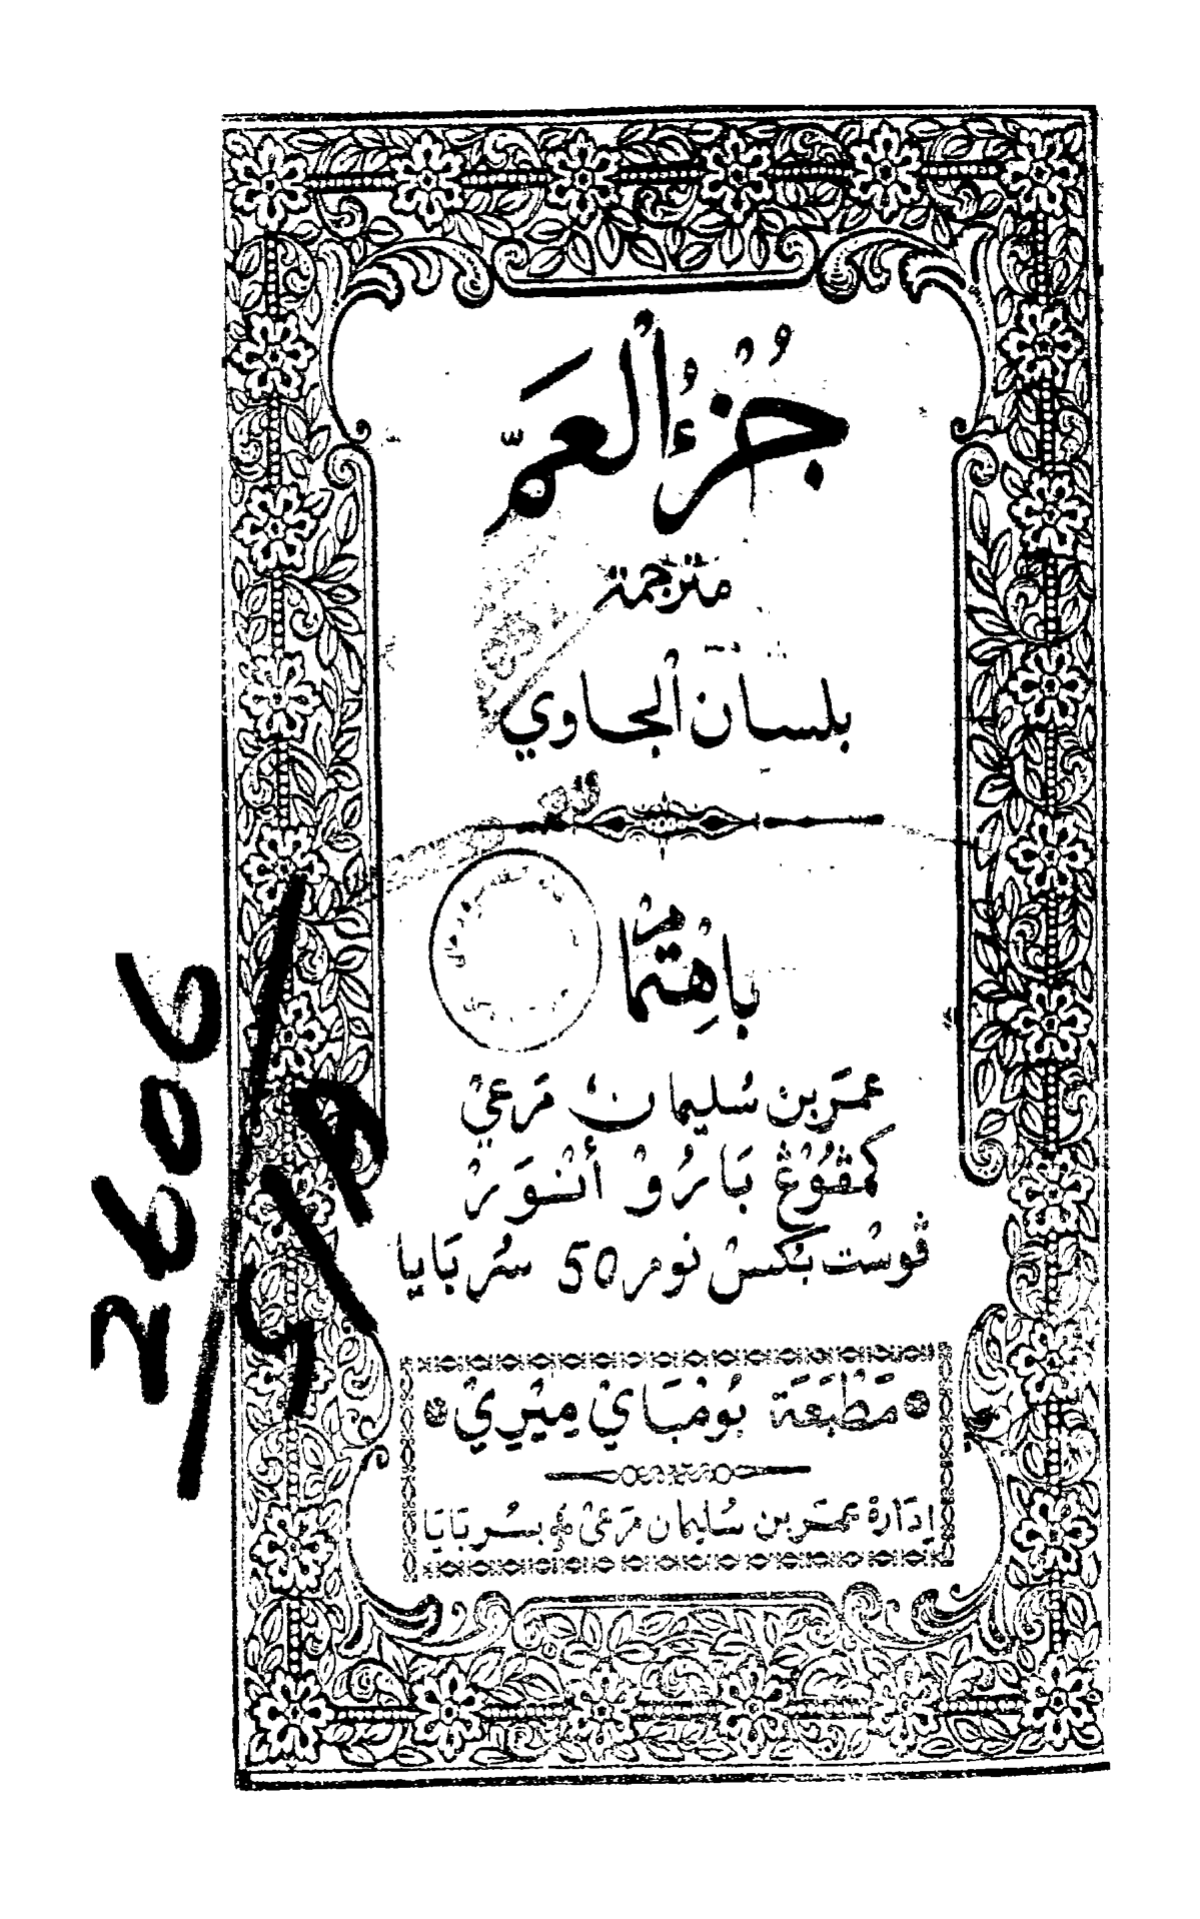 جُزْءُ الْعَمَّ
مترجمة
بلسان الجاوي
باهْتِمَامْ
عمَر بن سُليمان مَرعيْ
كمڤوُڠْ بَارُوْ أمْفَيلْ
ڤوسْت بُكسْ نومر 50 سُرَبَايا
مَطْبَعَة بُومْبَايْ مِيْرِيْ
إدَارة عمَر بن سُليمان مَرعيْ ۴ بسُرَبَايَا
2606